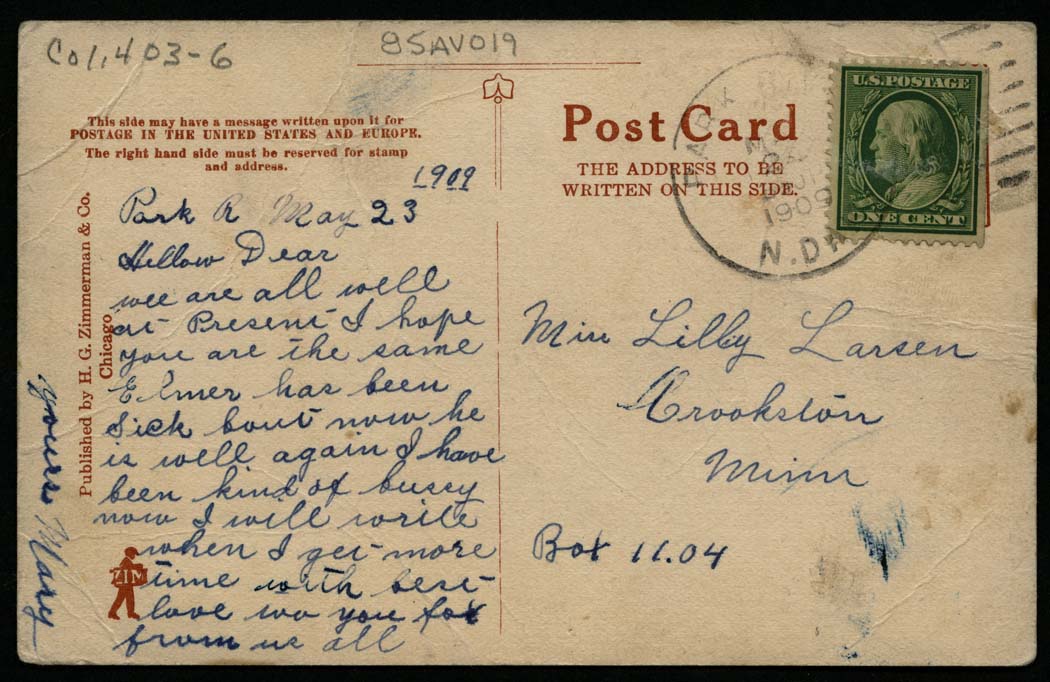 Col, 403-6
85AV019
This side may have a message written upon it for
POSTAGE IN THE UNITED STATES AND EUROPE.
The right hand side must be reserved for stamp
and address.
1909
Park R May 23
Hellow Dear
wee are all well
at Present I hope
you are the same
Elmer has been
Sick bout now he
is well again I have
been kind of bussy
now I will write
when I get more
time with best
love wo you
from us all
yours Mary
Published by H. G. Zimmerman & Co.
Chicago
ZIM
Post Card
THE ADDRESS TO BE
WRITTEN ON THIS SIDE.
PARK
1909
N.D.
U.S. POSTAGE
ONE CENT
Miss Lilly Larsen
Crookston
Minn
Box 11.04